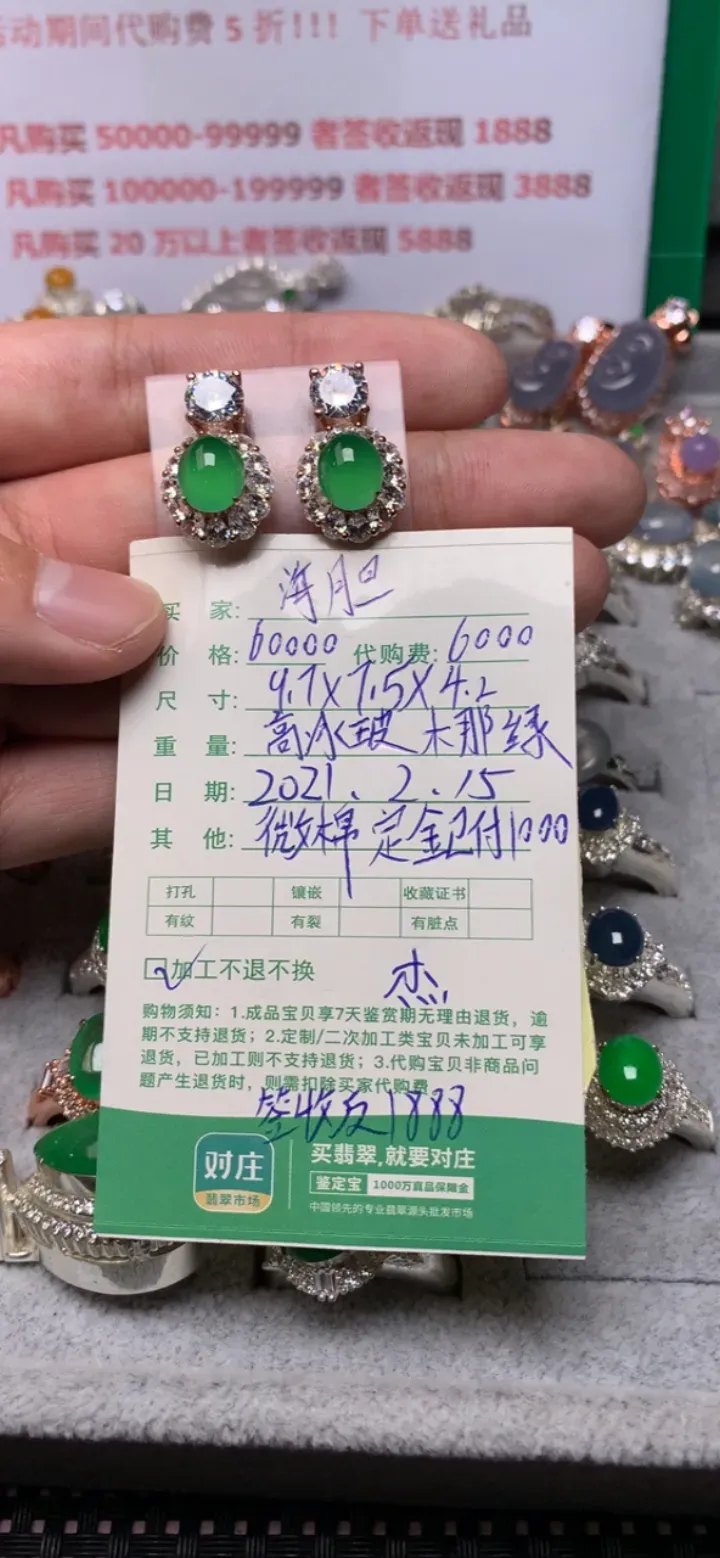 活动期间代购费 5 折!!! 下单送礼品
凡购买 50000-99999 者签收返现 1888
凡购买 100000-199999 者签收返现 3888
凡购买 20 万以上者签收返现 5888
买 家: 海胆
价 格: 60000 代购费: 6000
尺 寸: 9.7X7.5X4.2
重 量: 高冰玻 木那绿
日 期: 2021.2.15
其 他: 微棉 定金已付1000
打孔 镶嵌 收藏证书
有纹 有裂 有脏点
加工不退不换 杰
购物须知：1.成品宝贝享7天鉴赏期无理由退货，逾
期不支持退货；2.定制/二次加工类宝贝未加工可享
退货，已加工则不支持退货；3.代购宝贝非商品问
题产生退货时，则需扣除买家代购费
签收返1888
对庄
翡翠市场
买翡翠,就要对庄
鉴定宝 1000万真品保障金
中国领先的专业翡翠源头批发市场